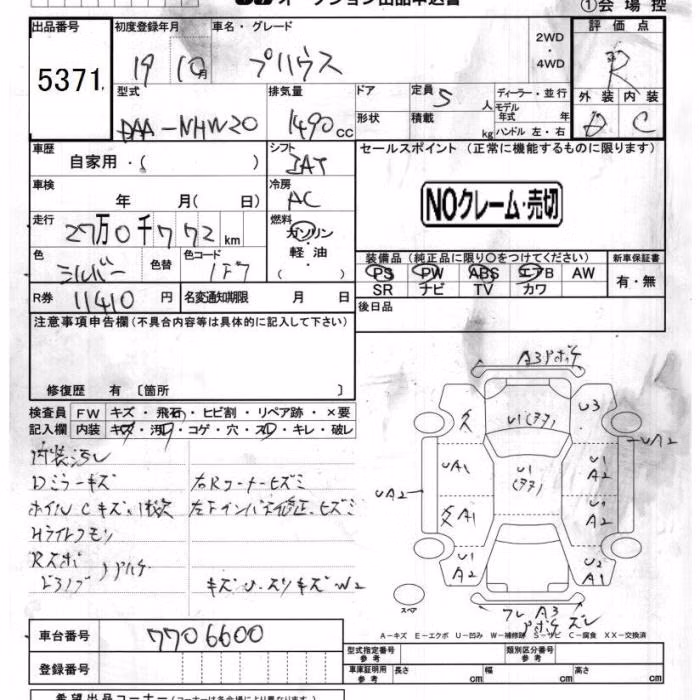 オークション出品申込書
①会場控
出品番号 初度登録年月 車名・グレード 2WD ・ 4WD 評価点
5371 19 10月 プリウス R
型式 排気量 ドア 定員 5 人 ディーラー・並行 外装 内装
DAA-NHW20 1490cc 形状 積載 kg モデル年式 年 ハンドル 左・右 D C
車歴 自家用・( ) シフト IAT セールスポイント (正常に機能するものに限ります)
車検 年 月( 日) 冷房 AC
NOクレーム・売切
走行 27万0千772km 燃料 ガソリン・軽油・( )
色 シルバー 色替 色コード 1F7
装備品 (純正品に限り○をつけてください) 新車保証書
PS PW ABS エアB AW 有・無
SR ナビ TV カワ
R券 11410円 名変通知期限 月 日 後日品
注意事項申告欄(不具合内容等は具体的に記入して下さい)
修復歴 有 〔箇所 〕
検査員 FW キズ・飛石・ヒビ割・リペア跡・×要
記入欄 内装 キズ・汚レ・コゲ・穴・スレ・キレ・破レ
内装汚レ
Dミラーキズ 右Rコーナーヒズミ
ホイルCキズ
Hライトクモリ
キズU.スリキズW2
A3
U1 U3
UA1 U1 U1 A2
UA2 UA2
A1 U1 A2
U1 A2 U2 A1
A3
スペア
A-キズ E-エクボ U-凹み W-補修跡 S-サビ C-腐食 XX-交換済
車台番号 7706600
登録番号
型式指定番号 参考 類別区分番号 参考
車庫証明用 参考 長さ cm 幅 cm 高さ cm
希望出品コーナー(コーナーは各会場により異なります)